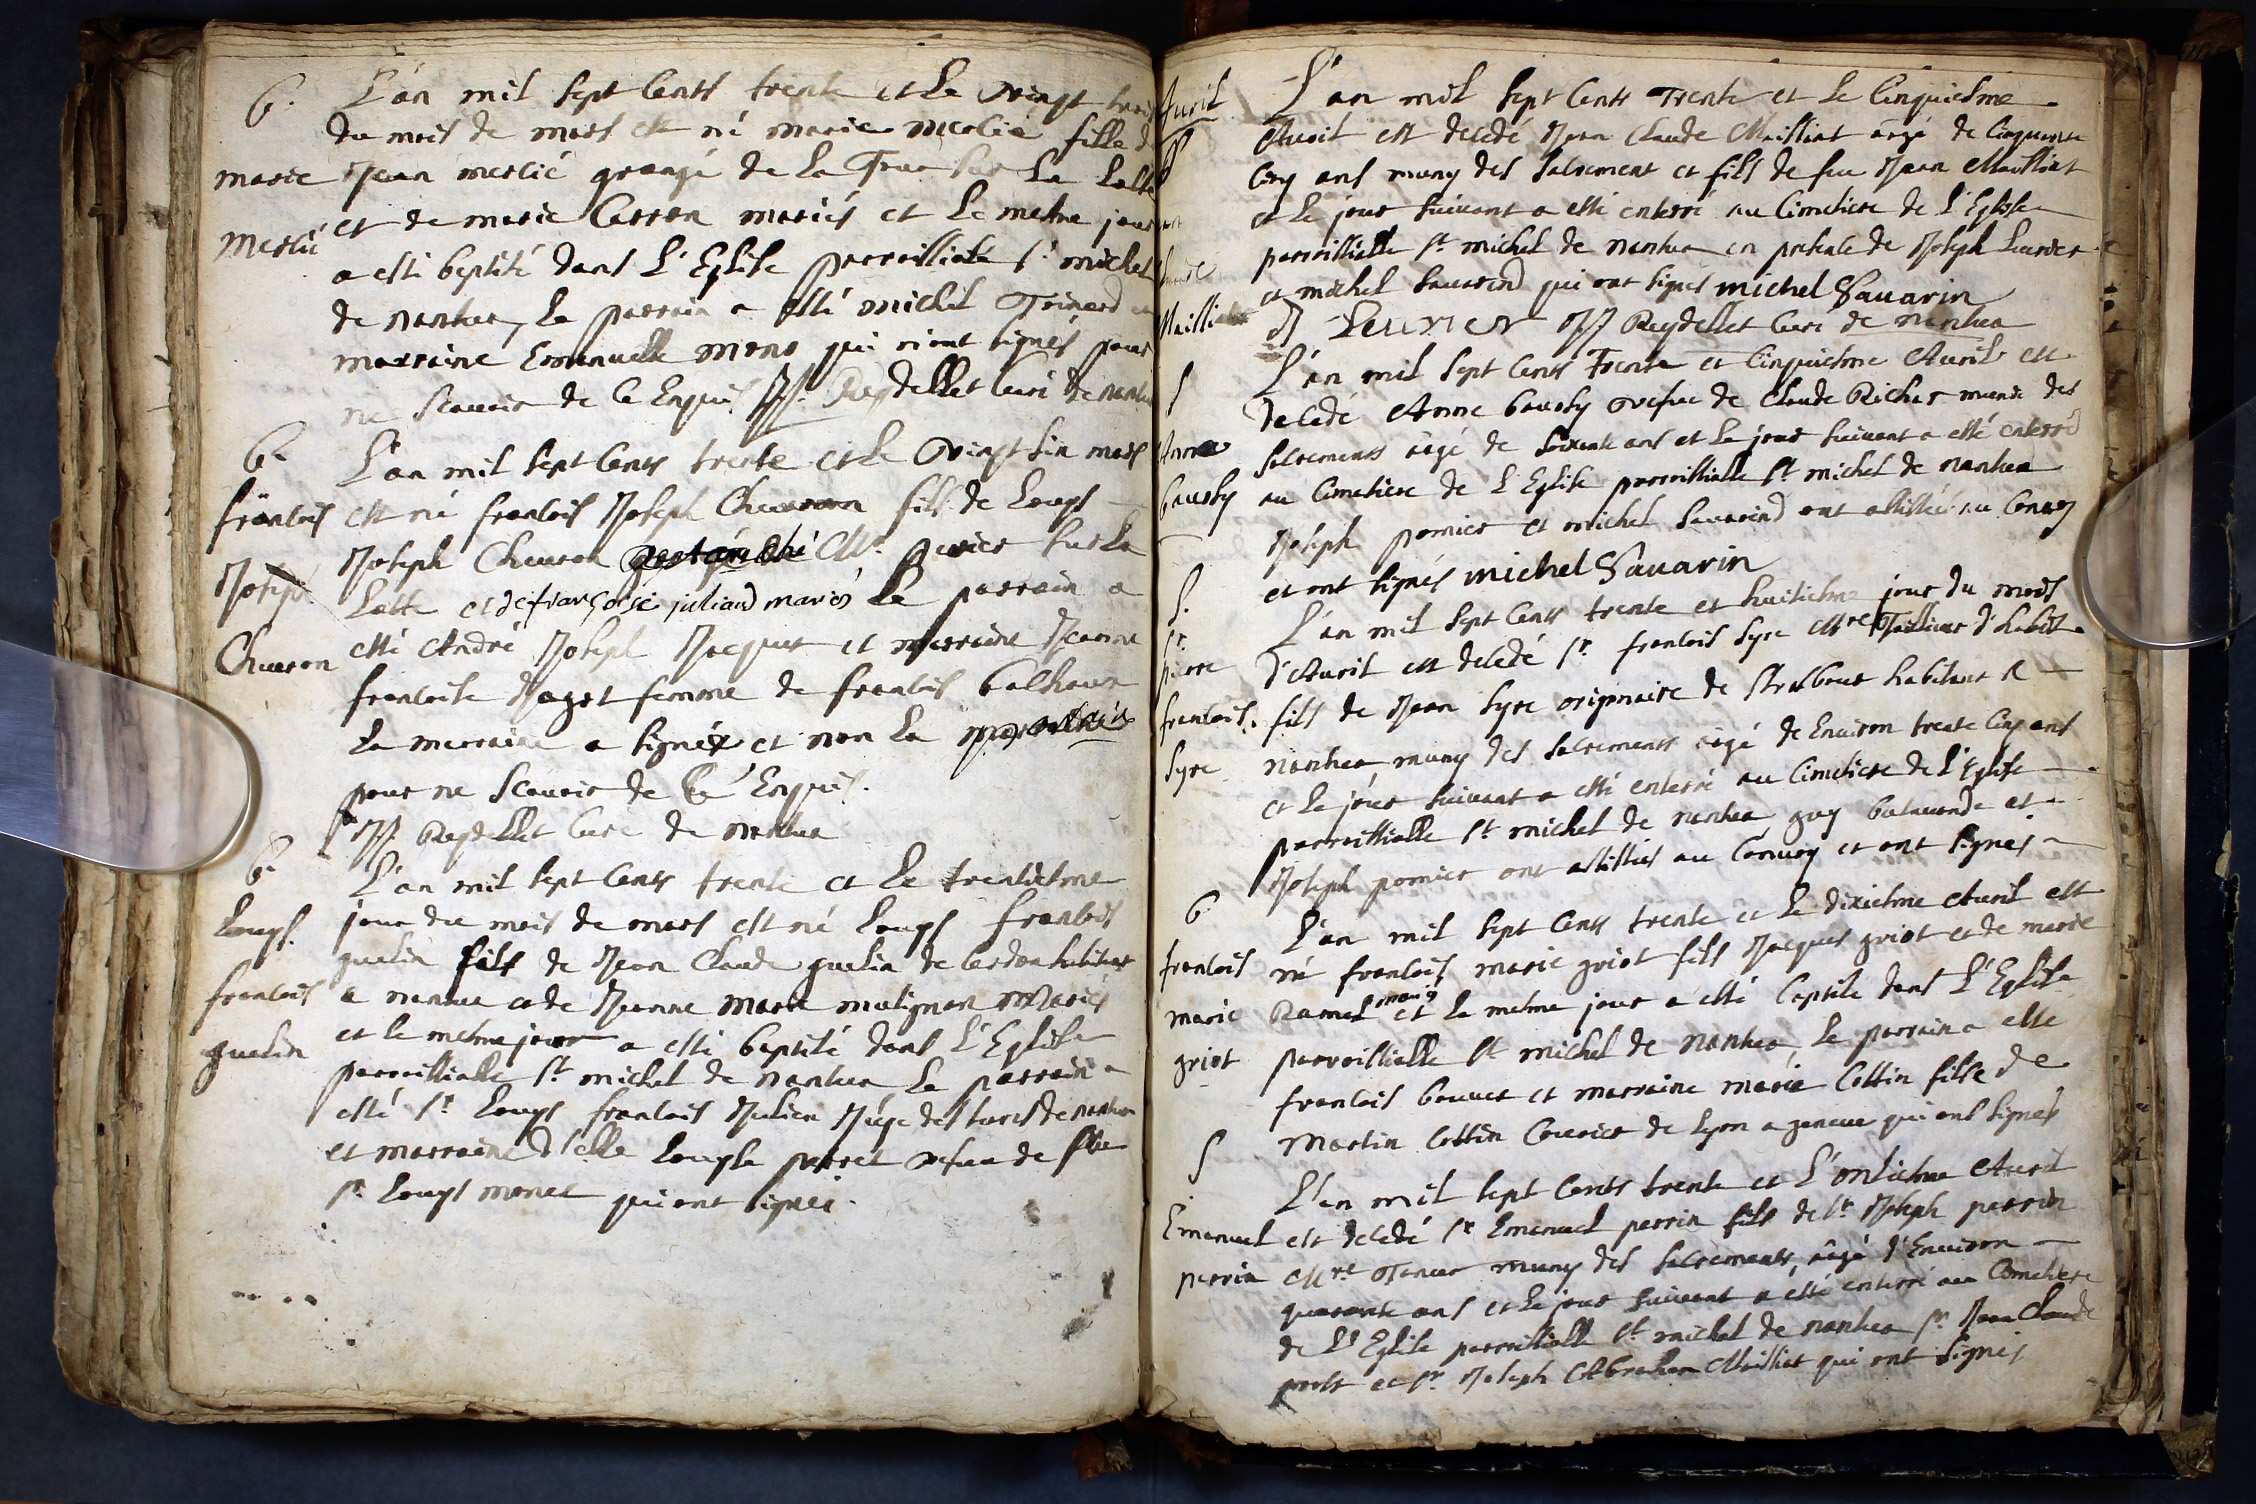 B.
L'an mil sept Cents trente et Le vingt trois
du mois de mars est né marie merlié fille de
marie
Jean merlié grangé de La sur La
merlié
et de marie Carron mariés et Le mesme jour
a esté baptisé dans L'Eglise parroissialle st michel
de nantua, Le parrain a esté michel et
marraine Emanuelle qui n'ont signés pour
ne scavoir de Ce Enquis JJ. Reydellet Curé de nantua
B.
L'an mil sept Cents trente et Le vingt sin mars
francois
est né francois Joseph Cheuron fils de Louys
Joseph
Joseph Cheuron Mre sur La
Cheuron
Latte et de françoise juliand mariés Le parrain a
esté André Joseph Jacques et marraine Jeanne
francoise femme de francois
La marraine a signéz et non La
pour ne scavoir de Cé Enquis.
JJ Reydellet Curé de nantua
B.
L'an mil sept Cents trente et Le trentiesme
Louys.
jour du mois de mars est né Louys francois
guelin fils de Jean Claude guelin de Cerdon habitant
francois
a nantua et de Jeanne marie malignon mariés
guelin
et le mesme jour a esté baptisé dans L'Eglise
parroissialle st michel de nantua Le parrain a
esté sr Louys francois Julien Juge des de nantua
et marraine Louyse perret vefue de feu
sr Louys monet qui ont signés.
Auril
L'an mil sept Cents Trente et Le Cinquiesme
S
Auril est decedé Jean Claude Mailliat aagé de Cinquante
Cinq ans muny des sacrement et fils de feu Jean Mailliat
et Le jour suivant a esté enterré au Cimetiere de L'Eglise
parroissialle st michel de nantua en presence de Joseph Leurier
Claude
et michel Sauarind qui ont signés michel Sauarin
Mailliat
J Leurier JJ Reydellet Curé de nantua
S
L'an mil sept Cents Trente et Cinquiesme Auril est
decedé Anne bausby vefue de Claude Richer munie des
Anne
sacrements aagé de soixante ans et Le jour suivant a esté enterré
bausby
au Cimetiere de L'Eglise parroissialle st michel de nantua
Joseph pomier et michel Sauarind ont assistés au Convoy
et ont signés michel Sauarin
S.
L'an mil sept Cents trente et huitiesme jour du mois
sr
pierre
d'Auril est decedé sr francois Syre Mre Tailleur d'habit
francois.
fils de Jean Syre originaire de Strasbour habitant a
Syre
nantua muny des sacrements aagé de Enuiron trente Cinq ans
et Le jour suivant a esté enterré au Cimetiere de L'Eglise
parroissialle st michel de nantua guy et
Joseph pomier ont assistés au Convoy et ont signés
B
L'an mil sept Cents trente et Le dixiesme Auril est
francois
né francois marie griot fils Jacques griot et de marie
marie
Ramel mariés et Le mesme jour a esté baptisé dans L'Eglise
griot
parroissialle st michel de nantua, Le parrain a esté
francois bouuet et marraine marie Cottin fille de
Martin Cottin Courier de Lyon a geneue qui ont signés
S
L'an mil sept Cents trente et L'onsiesme Auril
Emanuel
est decedé sr Emanuel perrin fils de sr Joseph perrin
perrin
Mre Taneur muny des sacrements, aagé d'Enuiron
quarante ans et Le jour suivant a esté enterré au Cimetiere
de L'Eglise parroissialle st michel de nantua sr Jean Claude
prost et sr Joseph Abraham Mailliat qui ont signés